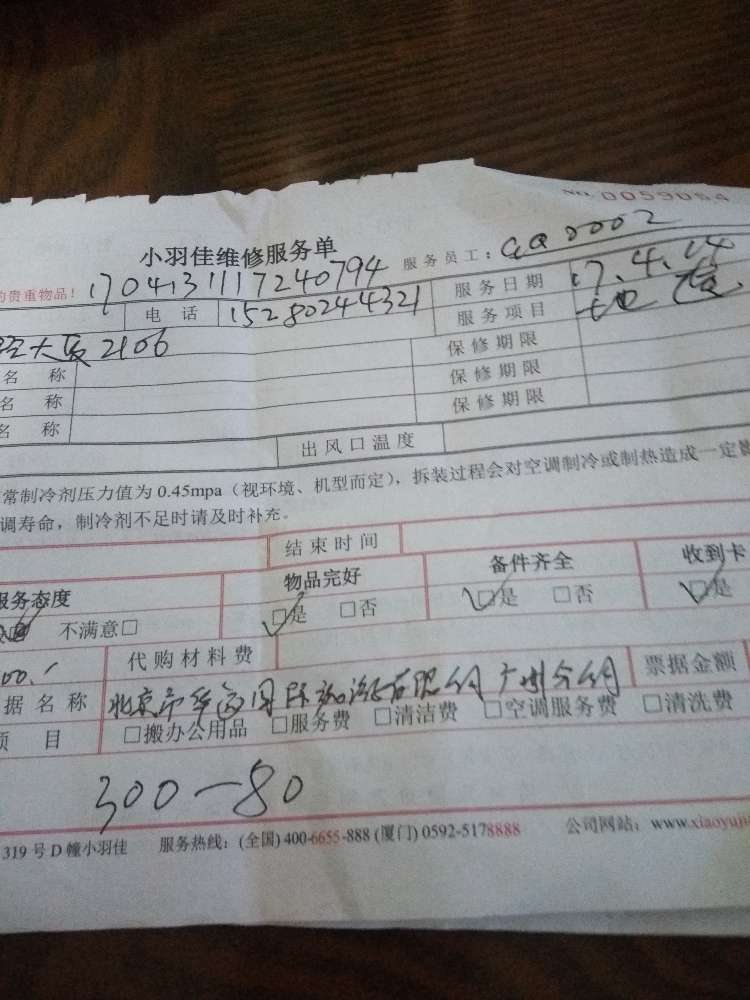 NO. 0059064
小羽佳维修服务单
服务员工：GQ0002
的贵重物品！ 1704131117240794
电 话 15280244321 服务日期 17.4.14
服务项目 地 毯
大厦2106 保修期限
名 称 保修期限
名 称 保修期限
名 称
出风口温度
常制冷剂压力值为 0.45mpa（视环境、机型而定），拆装过程会对空调制冷或制热造成一定影
调寿命，制冷剂不足时请及时补充。
结束时间
服务态度 物品完好 备件齐全 收到卡
不满意□ □是 □否 □是 □否 □是
00. 代购材料费 票据金额
据名称 北京市 国际旅游有限公司广州分公司
项 目 □搬办公用品 □服务费 □清洁费 □空调服务费 □清洗费
300-80
319 号 D 幢小羽佳 服务热线：(全国) 400-6655-888 (厦门) 0592-5178888 公司网站：www.xiaoyuji